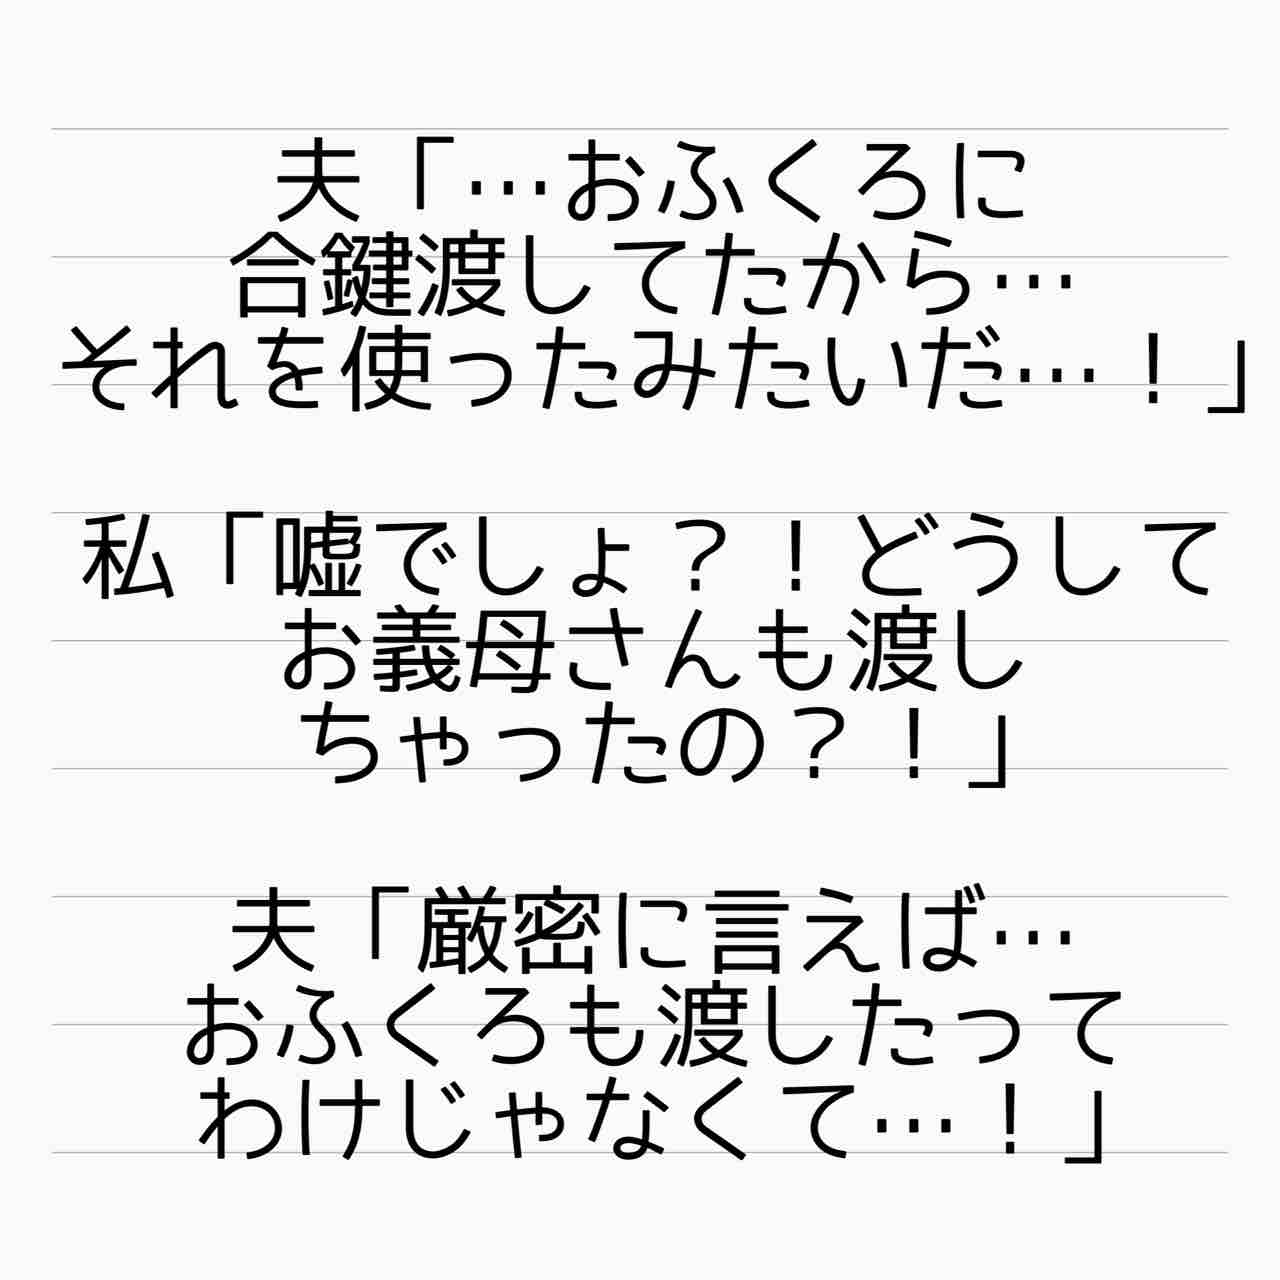 夫「…おふくろに
合鍵渡してたから…
それを使ったみたいだ…！」
私「嘘でしょ？！どうして
お義母さんも渡し
ちゃったの？！」
夫「厳密に言えば…
おふくろも渡したって
わけじゃなくて…！」